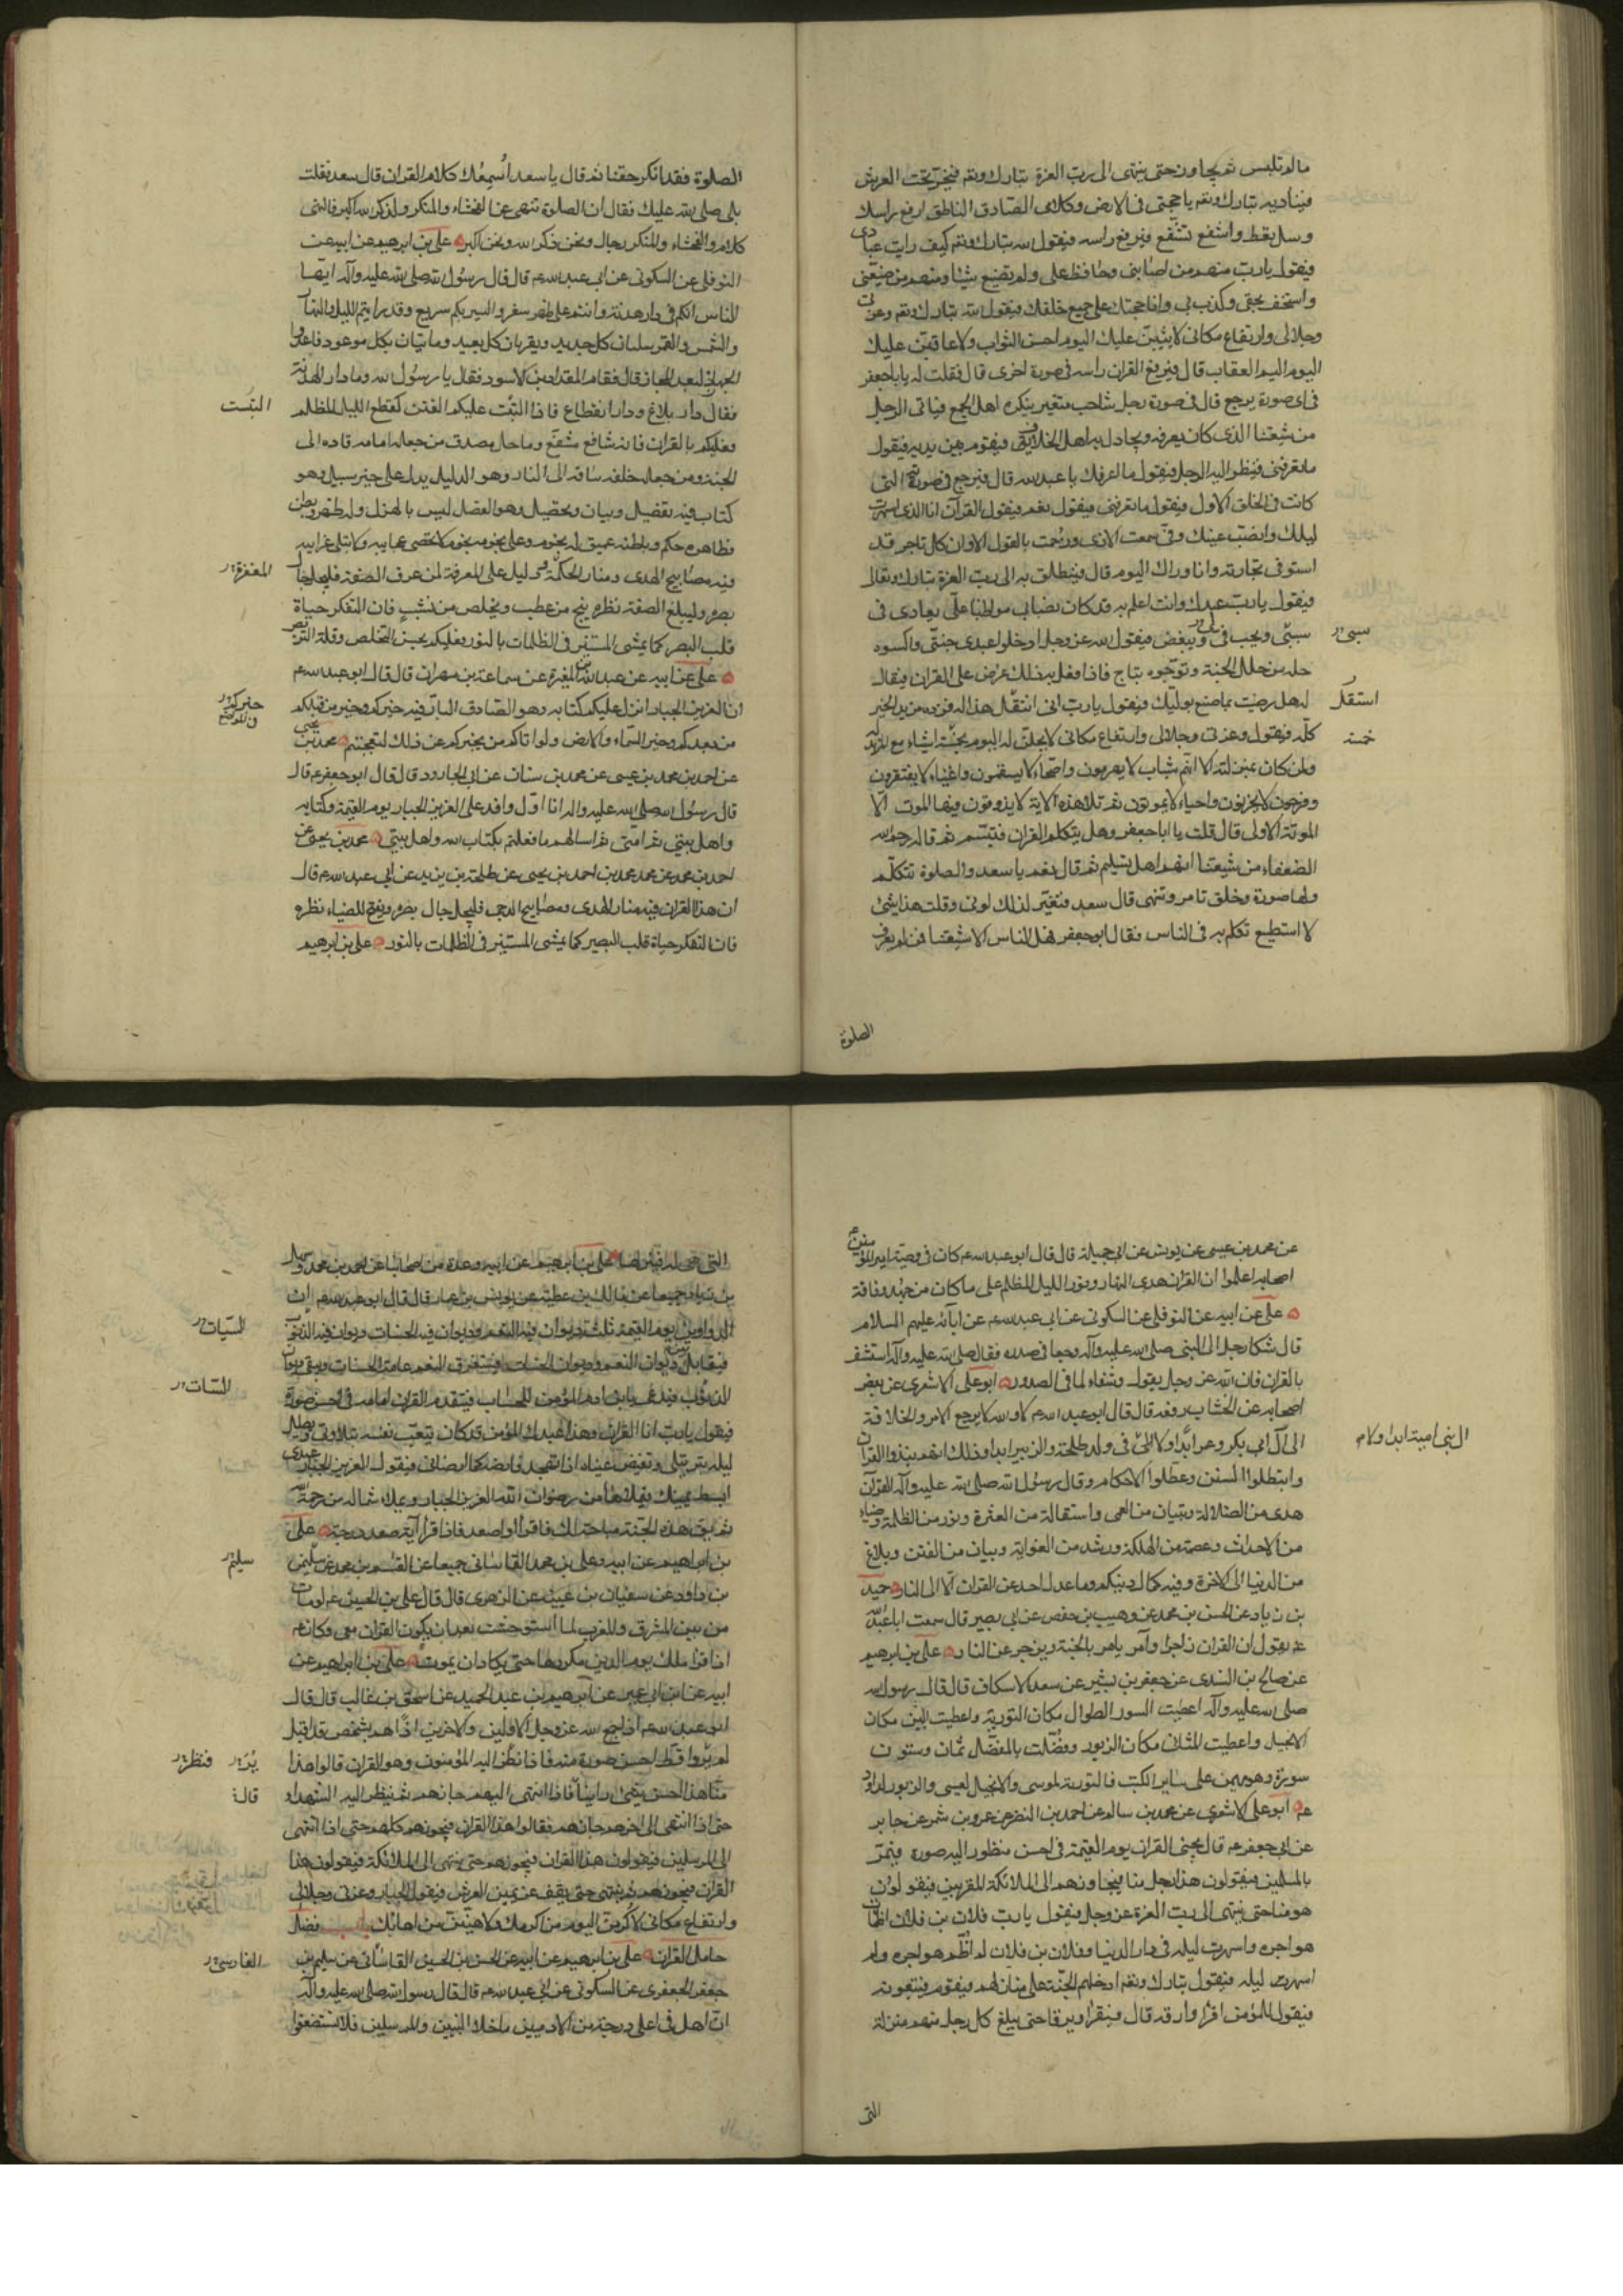 ما لم تلبس ثم يجاوز حتى ينتهى الى رب العزة تبارك وتعم فيخر تحت العرش
فيناديه تبارك وتعم يا حجتى فى الارض وكلامى الصادق الناطق ارفع راسك
وسل تعط واشفع تشفع فيرفع راسه فيقول الله تبارك وتعم كيف رايت عبادى
فيقول يارب منهم من صاننى وحافظ على ولم يضيع شيئا ومنهم من ضيعنى
واستخف بحقى وكذب بى وانا حجتك على جميع خلقك فيقول الله تبارك وتعم وعزتى
وجلالى وارتفاع مكانى لاثيبن عليك اليوم احسن الثواب ولاعاقبن عليك
اليوم اليم العقاب قال فيرفع القران راسه فى صورة اخرى قال فقلت له يا باجعفر
فى اى صورة يرجع قال فى صورة رجل شاحب متغير ينكره اهل الجمع فياتى الرجل
من شيعتنا الذى كان يعرفه ويجادل به اهل الخلاف فيقوم بين يديه فيقول
ما تعرفنى فينظر اليه الرجل فيقول ما اعرفك يا عبد الله قال فيرجع فى صورته التى
كانت فى الخلق الاول فيقول ما تعرفنى فيقول نعم فيقول القرآن انا الذى اسهرت
ليلك وانصبت عينك وفى سمعت الاذى ورجمت بالقول الا وان كل تاجر قد
استوفى تجارته وانا وراك اليوم قال فينطلق به الى رب العزة تبارك وتعالى
فيقول يارب عبدك وانت اعلم به قد كان نصبا بى مواظبا على يعادى فى
سببى ويحب فى ويبغض فيقول الله عز وجل ادخلوا عبدى جنتى واكسوه
سببى
حلة من حلل الجنة وتوجوه بتاج فاذا فعل به ذلك عرض على القران فيقال
له هل رضيت بما صنع بوليك فيقول يارب انى استقل هذا له فزده مزيد الخير
استقل
كله فيقول وعزتى وجلالى وارتفاع مكانى لانحلن له اليوم خمسة اشياء مع المزيد له
خمسة
ولمن كان بمنزلته الا انهم شباب لا يهرمون واصحاء لا يسقمون واغنياء لا يفتقرون
وفرحون لا يحزنون واحياء لا يموتون ثم تلا هذه الاية لا يذوقون فيها الموت الا
الموتة الاولى قال قلت يا ابا جعفر وهل يتكلم القران فتبسم ثم قال رحم الله
الضعفاء من شيعتنا انهم اهل تسليم ثم قال نعم يا سعد والصلوة تتكلم
ولها صورة وخلق تامر وتنهى قال سعد فتغير لذلك لونى وقلت هذا شئ
لا استطيع تكلم به فى الناس فقال ابو جعفر هل الناس الا شيعتنا فمن لم يعرف
الصلوة
الصلوة فقد انكر حقنا ثم قال يا سعد اسمعك كلام القران قال سعد فقلت
بلى صلى الله عليك فقال ان الصلوة تنهى عن الفحشاء والمنكر ولذكر الله اكبر فالنهى
كلام والفحشاء والمنكر رجال ونحن ذكر الله ونحن اكبر على بن ابرهيم عن ابيه عن
النوفلى عن السكونى عن ابى عبد الله عم قال قال رسول الله صلى الله عليه وآله ايها
الناس انكم فى دار هدنة وانتم على ظهر سفر والسير بكم سريع وقد رايتم الليل والنهار
والشمس والقمر يبليان كل جديد ويقربان كل بعيد وما تيان بكل موعود فاعدوا
الجهاز لبعد المجاز قال فقام المقداد بن الاسود فقال يا رسول الله وما دار الهدنة
فقال دار بلاغ ودار انقطاع فاذا التبست عليكم الفتن كقطع الليل المظلم
التبست
فعليكم بالقران فانه شافع مشفع وماحل مصدق من جعله امامه قاده الى
الجنة ومن جعله خلفه ساقه الى النار وهو الدليل يدل على خير سبيل وهو
كتاب فيه تفصيل وبيان وتحصيل وهو الفصل ليس بالهزل وله ظهر وبطن
فظاهره حكم وباطنه عميق له نجوم وعلى نجومه نجوم لا تحصى عجايبه ولا تبلى غرايبه
فيه مصابيح الهدى ومنار الحكمة ودليل على المعرفة لمن عرف الصفة فليجل جال
المغفرة
بصره وليبلغ الصفة نظره ينج من عطب ويخلص من نشب فان التفكر حياة
قلب البصير كما يمشى المستنير فى الظلمات بالنور فعليكم بحسن التخلص وقلة التربص
على عن ابيه عن عبد الله بن المغيرة عن سماعة بن مهران قال قال ابو عبد الله عم
ان العزيز الجبار انزل عليكم كتابه وهو الصادق البار فيه خبركم وخبر من قبلكم
خبركم
من بعدكم وخبر السماء والارض ولو اتاكم من يخبركم عن ذلك لتعجبتم محمد بن يحيى
عن احمد بن محمد بن عيسى عن محمد بن سنان عن ابى الجارود قال قال ابو جعفر عم قال
قال رسول الله صلى الله عليه واله انا اول وافد على العزيز الجبار يوم القيمة وكتابه
واهل بيتى ثم امتى ثم اسالهم ما فعلتم بكتاب الله واهل بيتى محمد بن يحيى عن
احمد بن محمد عن محمد بن احمد بن يحيى عن طلحة بن زيد عن ابى عبد الله عم قال
ان هذا القران فيه منار الهدى ومصابيح الدجى فليجل جال بصره ويفتح للضياء نظره
فان التفكر حياة قلب البصير كما يمشى المستنير فى الظلمات بالنور على بن ابرهيم
عن محمد بن عيسى عن يونس عن ابى جميلة قال قال ابو عبد الله عم كان فى وصية امير المؤمنين عم
اصحابه اعلموا ان القران هدى النهار ونور الليل المظلم على ما كان من جهد وفاقة
على عن ابيه عن النوفلى عن السكونى عن ابى عبد الله عم عن ابائه عليهم السلام
قال شكا رجل الى النبى صلى الله عليه وآله وجعا فى صدره فقال صلى الله عليه وآله استشف
بالقران فان الله عز وجل يقول وشفاء لما فى الصدور ابو على الاشعرى عن بعض
اصحابه عن الخشاب رفعه قال قال ابو عبد الله عم لا والله لا يرجع الامر والخلافة
الى آل ابى بكر وعمر ابدا ولا الى بنى امية ابدا ولا فى ولد طلحة والزبير ابدا وذلك انهم نبذوا القران
ال بنى امية ابدا ولا م
وابطلوا السنن وعطلوا الاحكام وقال رسول الله صلى الله عليه وآله القرآن
هدى من الضلالة وتبيان من العمى واستقالة من العثرة ونور من الظلمة وضياء
من الاحداث وعصمة من الهلكة ورشد من الغواية وبيان من الفتن وبلاغ
من الدنيا الى الاخرة وفيه كمال دينكم وما عدل احد عن القران الا الى النار حميد
بن زياد عن الحسن بن محمد عن وهيب بن حفص عن ابى بصير قال سمعت ابا عبد الله
عم يقول ان القران زاجر وآمر يامر بالجنة ويزجر عن النار على بن ابرهيم
عن صالح بن السندى عن جعفر بن بشير عن سعد الاسكاف قال قال رسول الله
صلى الله عليه وآله اعطيت السور الطوال مكان التورية واعطيت المئين مكان
الانجيل واعطيت المثانى مكان الزبور وفضلت بالمفصل ثمان وستون
سورة وهو مهيمن على ساير الكتب فالتورية لموسى والانجيل لعيسى والزبور لداود
عم ابو على الاشعرى عن محمد بن سالم عن احمد بن النضر عن عمرو بن شمر عن جابر
عن ابى جعفر عم قال يجئ القران يوم القيمة فى احسن منظور اليه صورة فيمر
بالمسلمين فيقولون هذا رجل منا فيجاوزهم الى الملائكة المقربين فيقولون
هو منا حتى ينتهى الى رب العزة عز وجل فيقول يارب فلان بن فلان اظمات
هواجره واسهرت ليله فى دار الدنيا وفلان بن فلان لم اظم هواجره ولم
اسهرت ليله فيقول تبارك وتعم ادخلهم الجنة على منازلهم فيقوم فيتبعونه
فيقول للمؤمن اقرا وارقه قال فيقرا ويرقا حتى يبلغ كل رجل منهم منزلة
التى
التى هى له فينزلها على بن ابرهيم عن ابيه وعدة من اصحابنا عن احمد بن محمد وسهل
بن زياد جميعا عن مالك بن عطية عن يونس بن عمار قال قال ابو عبد الله عم ان
الدواوين يوم القيمة ثلثة ديوان فيه النعم وديوان فيه الحسنات وديوان فيه الذنوب
السيئات
فيقابل بين ديوان النعم وديوان الحسنات فيستغرق النعم عامة الحسنات ويبقى ديوان
الذنوب فيدعى بابن ادم المؤمن للحساب فيتقدم القران امامه فى احسن صورة
السيئات
فيقول يارب انا القران وهذا عبدك المؤمن قد كان يتعب نفسه بتلاوتى ويطيل
ليله بترتيلى وتفيض عيناه اذا تهجد فارضه كما ارضانى فيقول العزيز الجبار عبدى
ابسط يمينك فيملاها من رضوان الله العزيز الجبار ويملا شماله من رحمة الله
ثم يق هذه الجنة مباحة لك فاقرا واصعد فاذا قرا آية صعد درجة على
بن ابراهيم عن ابيه وعلى بن محمد القاسانى جميعا عن القسم بن محمد عن سليمن
سليم
بن داود عن سفيان بن عيينة عن الزهرى قال قال على بن الحسين عم لو مات
من بين المشرق والمغرب لما استوحشت بعد ان يكون القران معى وكان عم
اذا قرا ملك يوم الدين يكررها حتى يكاد ان يموت على بن ابراهيم عن
ابيه عن ابن ابى عمير عن ابرهيم بن عبد الحميد عن اسحق بن غالب قال قال
ابو عبد الله عم اذا جمع الله عز وجل الاولين والاخرين اذا هم بشخص قد اقبل
لم يروا قط احسن صورة منه فاذا نظر اليه المؤمنون وهو القران قالوا هذا
يُرَ فنظر
منا هذا احسن شئ راينا فاذا انتهى اليهم جازهم ثم ينظر اليه الشهداء
قال
حتى اذا انتهى الى اخرهم جازهم فقالوا هذا القران فيجوزهم كلهم حتى اذا انتهى
الى المرسلين فيقولون هذا القران فيجوزهم حتى ينتهى الى الملائكة فيقولون هذا
القران فيجوزهم ثم ينتهى حتى يقف عن يمين العرش فيقول الجبار وعزتى وجلالى
وارتفاع مكانى لاكرمن اليوم من اكرمك ولاهينن من اهانك باب فضل
حامل القران على بن ابرهيم عن ابيه عن الحسن بن الحسين القاسانى عن سليم بن
الفارسى
جعفر الجعفرى عن السكونى عن ابى عبد الله عم قال قال رسول الله صلى الله عليه وآله
ان اهل فى اعلى درجة من الادميين ما خلا النبيين والمرسلين فلا تستضعفوا